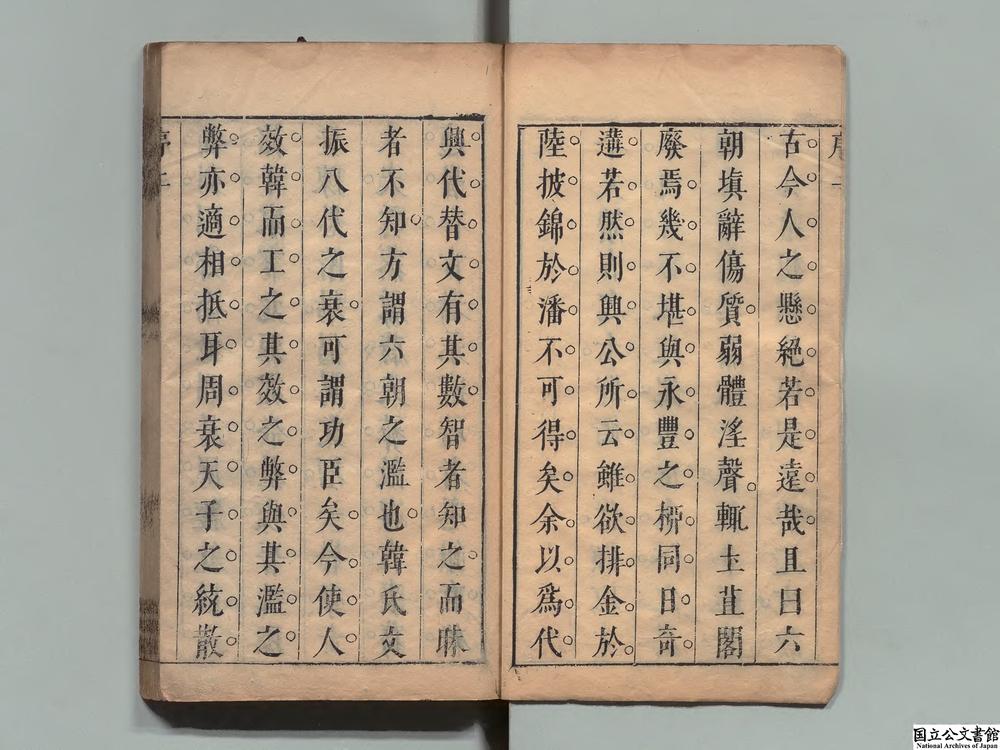 古今人之懸絕若是遠哉且曰六
朝塡辭傷質弱體淫聲輒土苴閣
廢焉幾不堪與永豐之栁同日竒
遘若然則興公所云雖欲排金於
陸披錦於潘不可得矣余以爲代
興代替文有其數智者知之而昧
者不知方謂六朝之濫也韓氏文
振八代之衰可謂功臣矣今使人
效韓而工之其效之弊與其濫之
弊亦適相抵耳周衰天子之統散
国立公文書館
National Archives of Japan